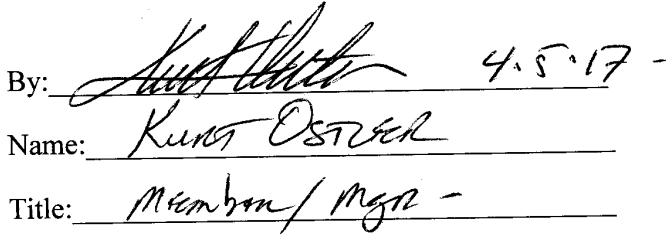 By: 4.5.17 -
Name: Kurt Ostler
Title: Member / Mgr -